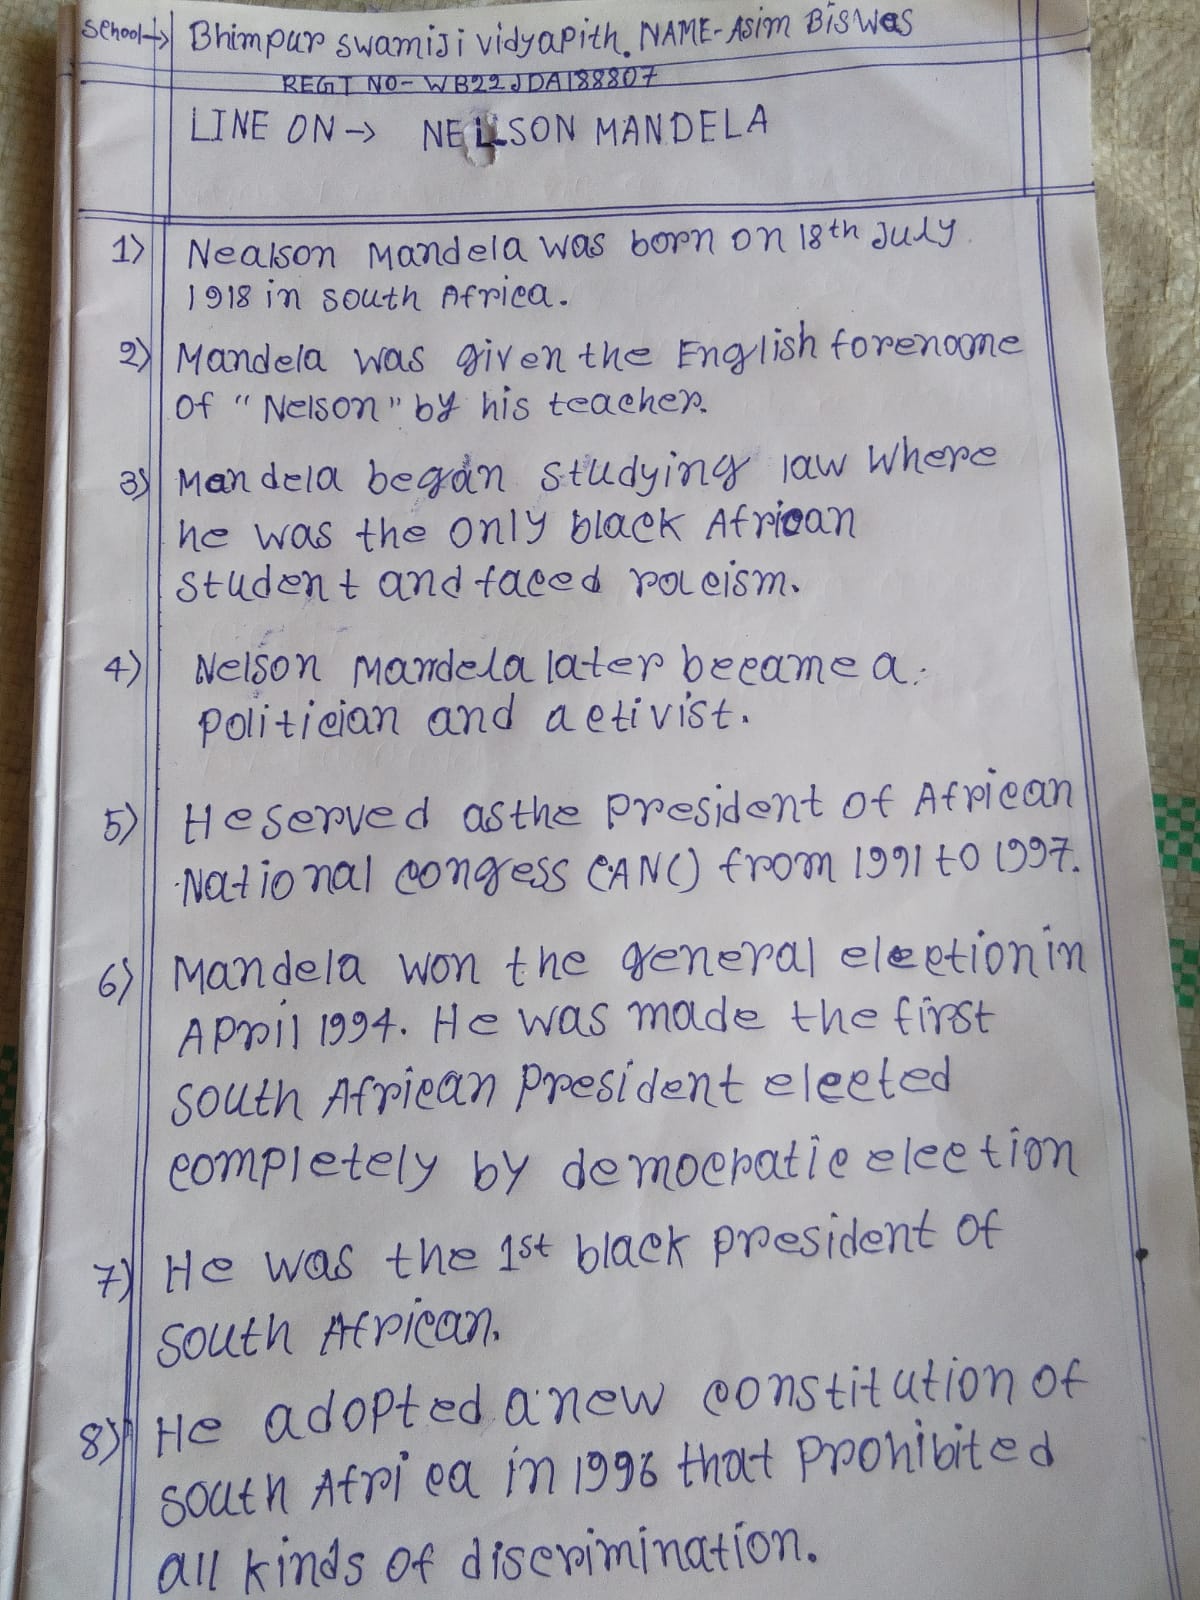 School→ Bhimpur swamiji vidyapith. NAME-Asim Biswas
REGT NO- WB22JDA188807
LINE ON → NELLSON MANDELA
1) Nealson Mandela was born on 18th July
1918 in south Africa.
2) Mandela was given the English forenome
of "Nelson" by his teacher.
3) Mandela began studying law where
he was the only black African
student and faced racism.
4) Nelson Mandela later became a
politician and activist.
5) He served as the president of African
National congess (ANC) from 1991 to 1997.
6) Mandela won the general election in
April 1994. He was made the first
south African president elected
completely by democratic election
7) He was the 1st black president of
south African.
8) He adopted a new constitution of
south Africa in 1996 that prohibited
all kinds of discrimination.